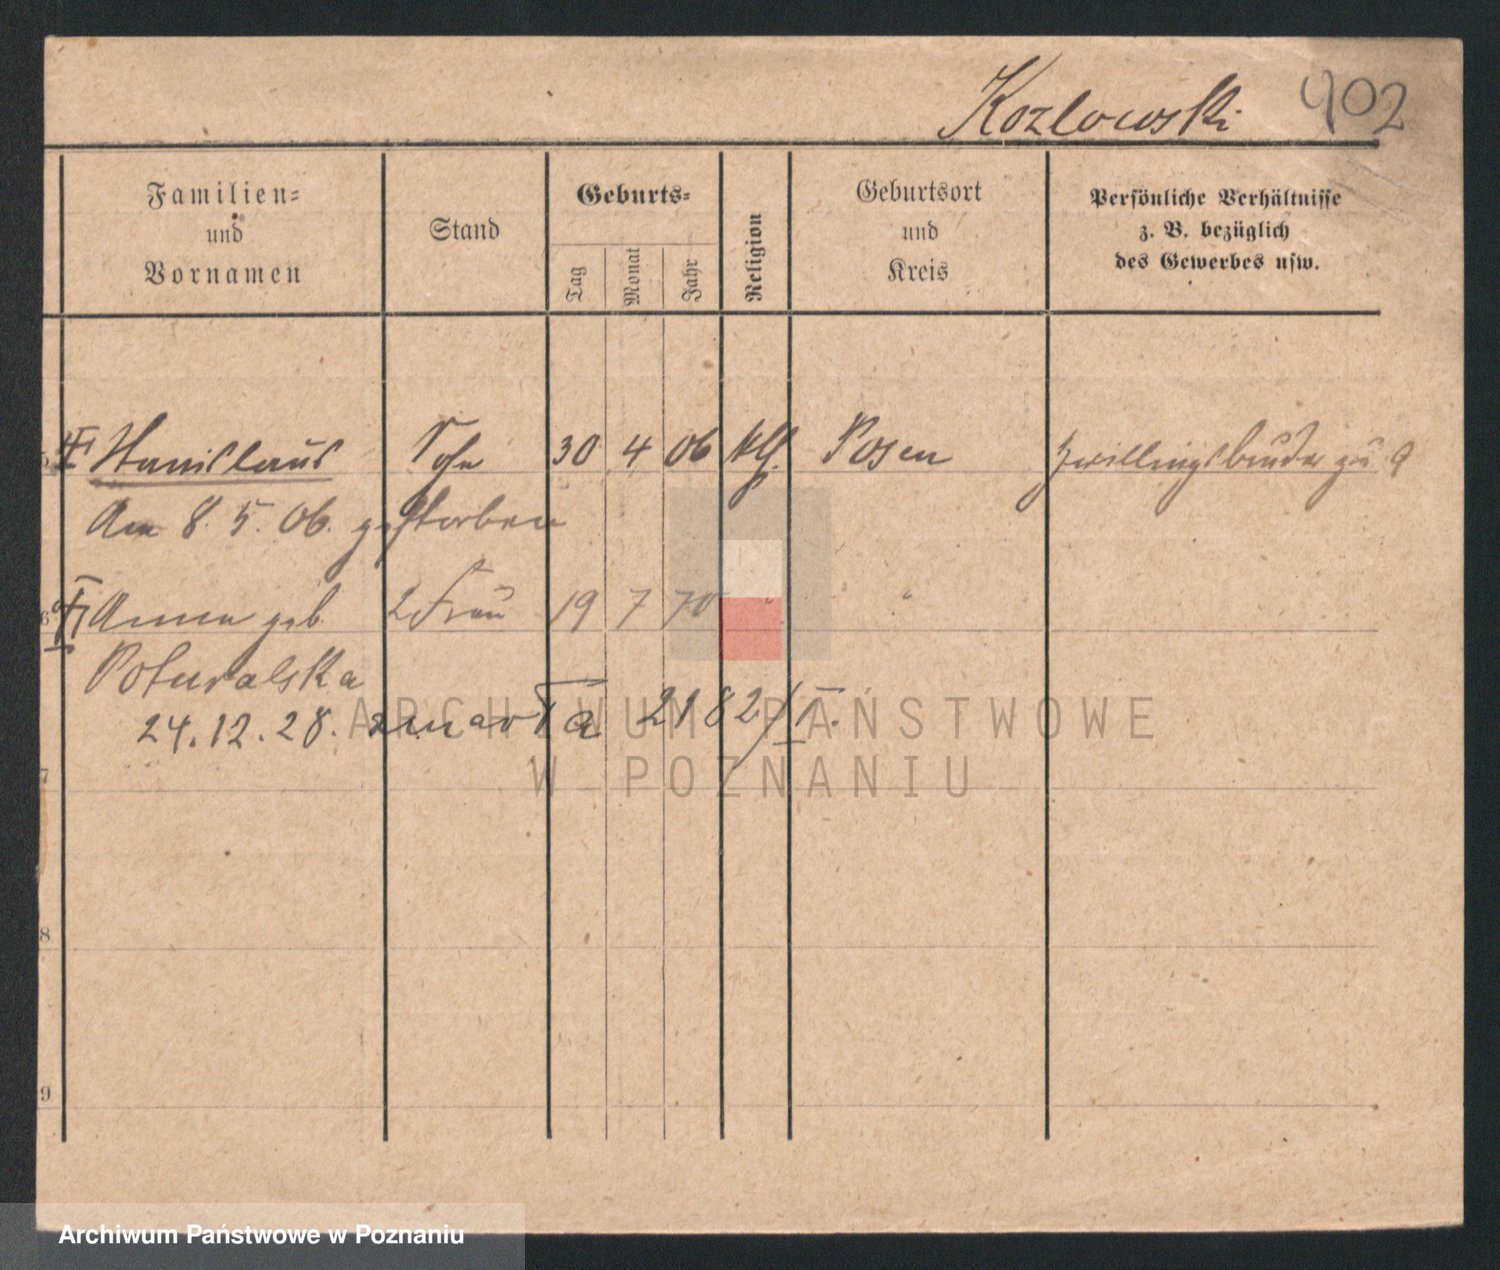 Kozlowski 902
Familien=
und
Vornamen
Stand
Geburts=
Tag
Monat
Jahr
Religion
Geburtsort
und
Kreis
Persönliche Verhältnisse
z. B. bezüglich
des Gewerbes usw.
5 Stanislaus Sohn 30 4 06 Kth. Posen Zwillingsbruder zu 9
Am 8. 5. 06. gestorben
6 Anna geb. 2 Frau 19 7 70 " "
Poturalska
24.12.28. zmarła 2182/I.
7
8
9
ARCHIWUM PAŃSTWOWE
W POZNANIU
Archiwum Państwowe w Poznaniu